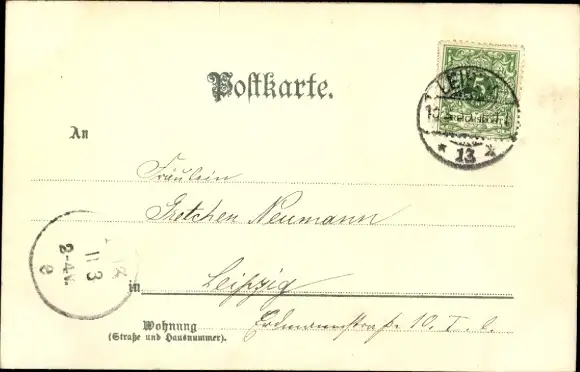 Postkarte.
5
LEIP
13
An
Fräulein
Gretchen Neumann
11 3
2-4N.
in Leipzig
Wohnung
(Straße und Hausnummer).
Erdmannstraß. 10. I. l.